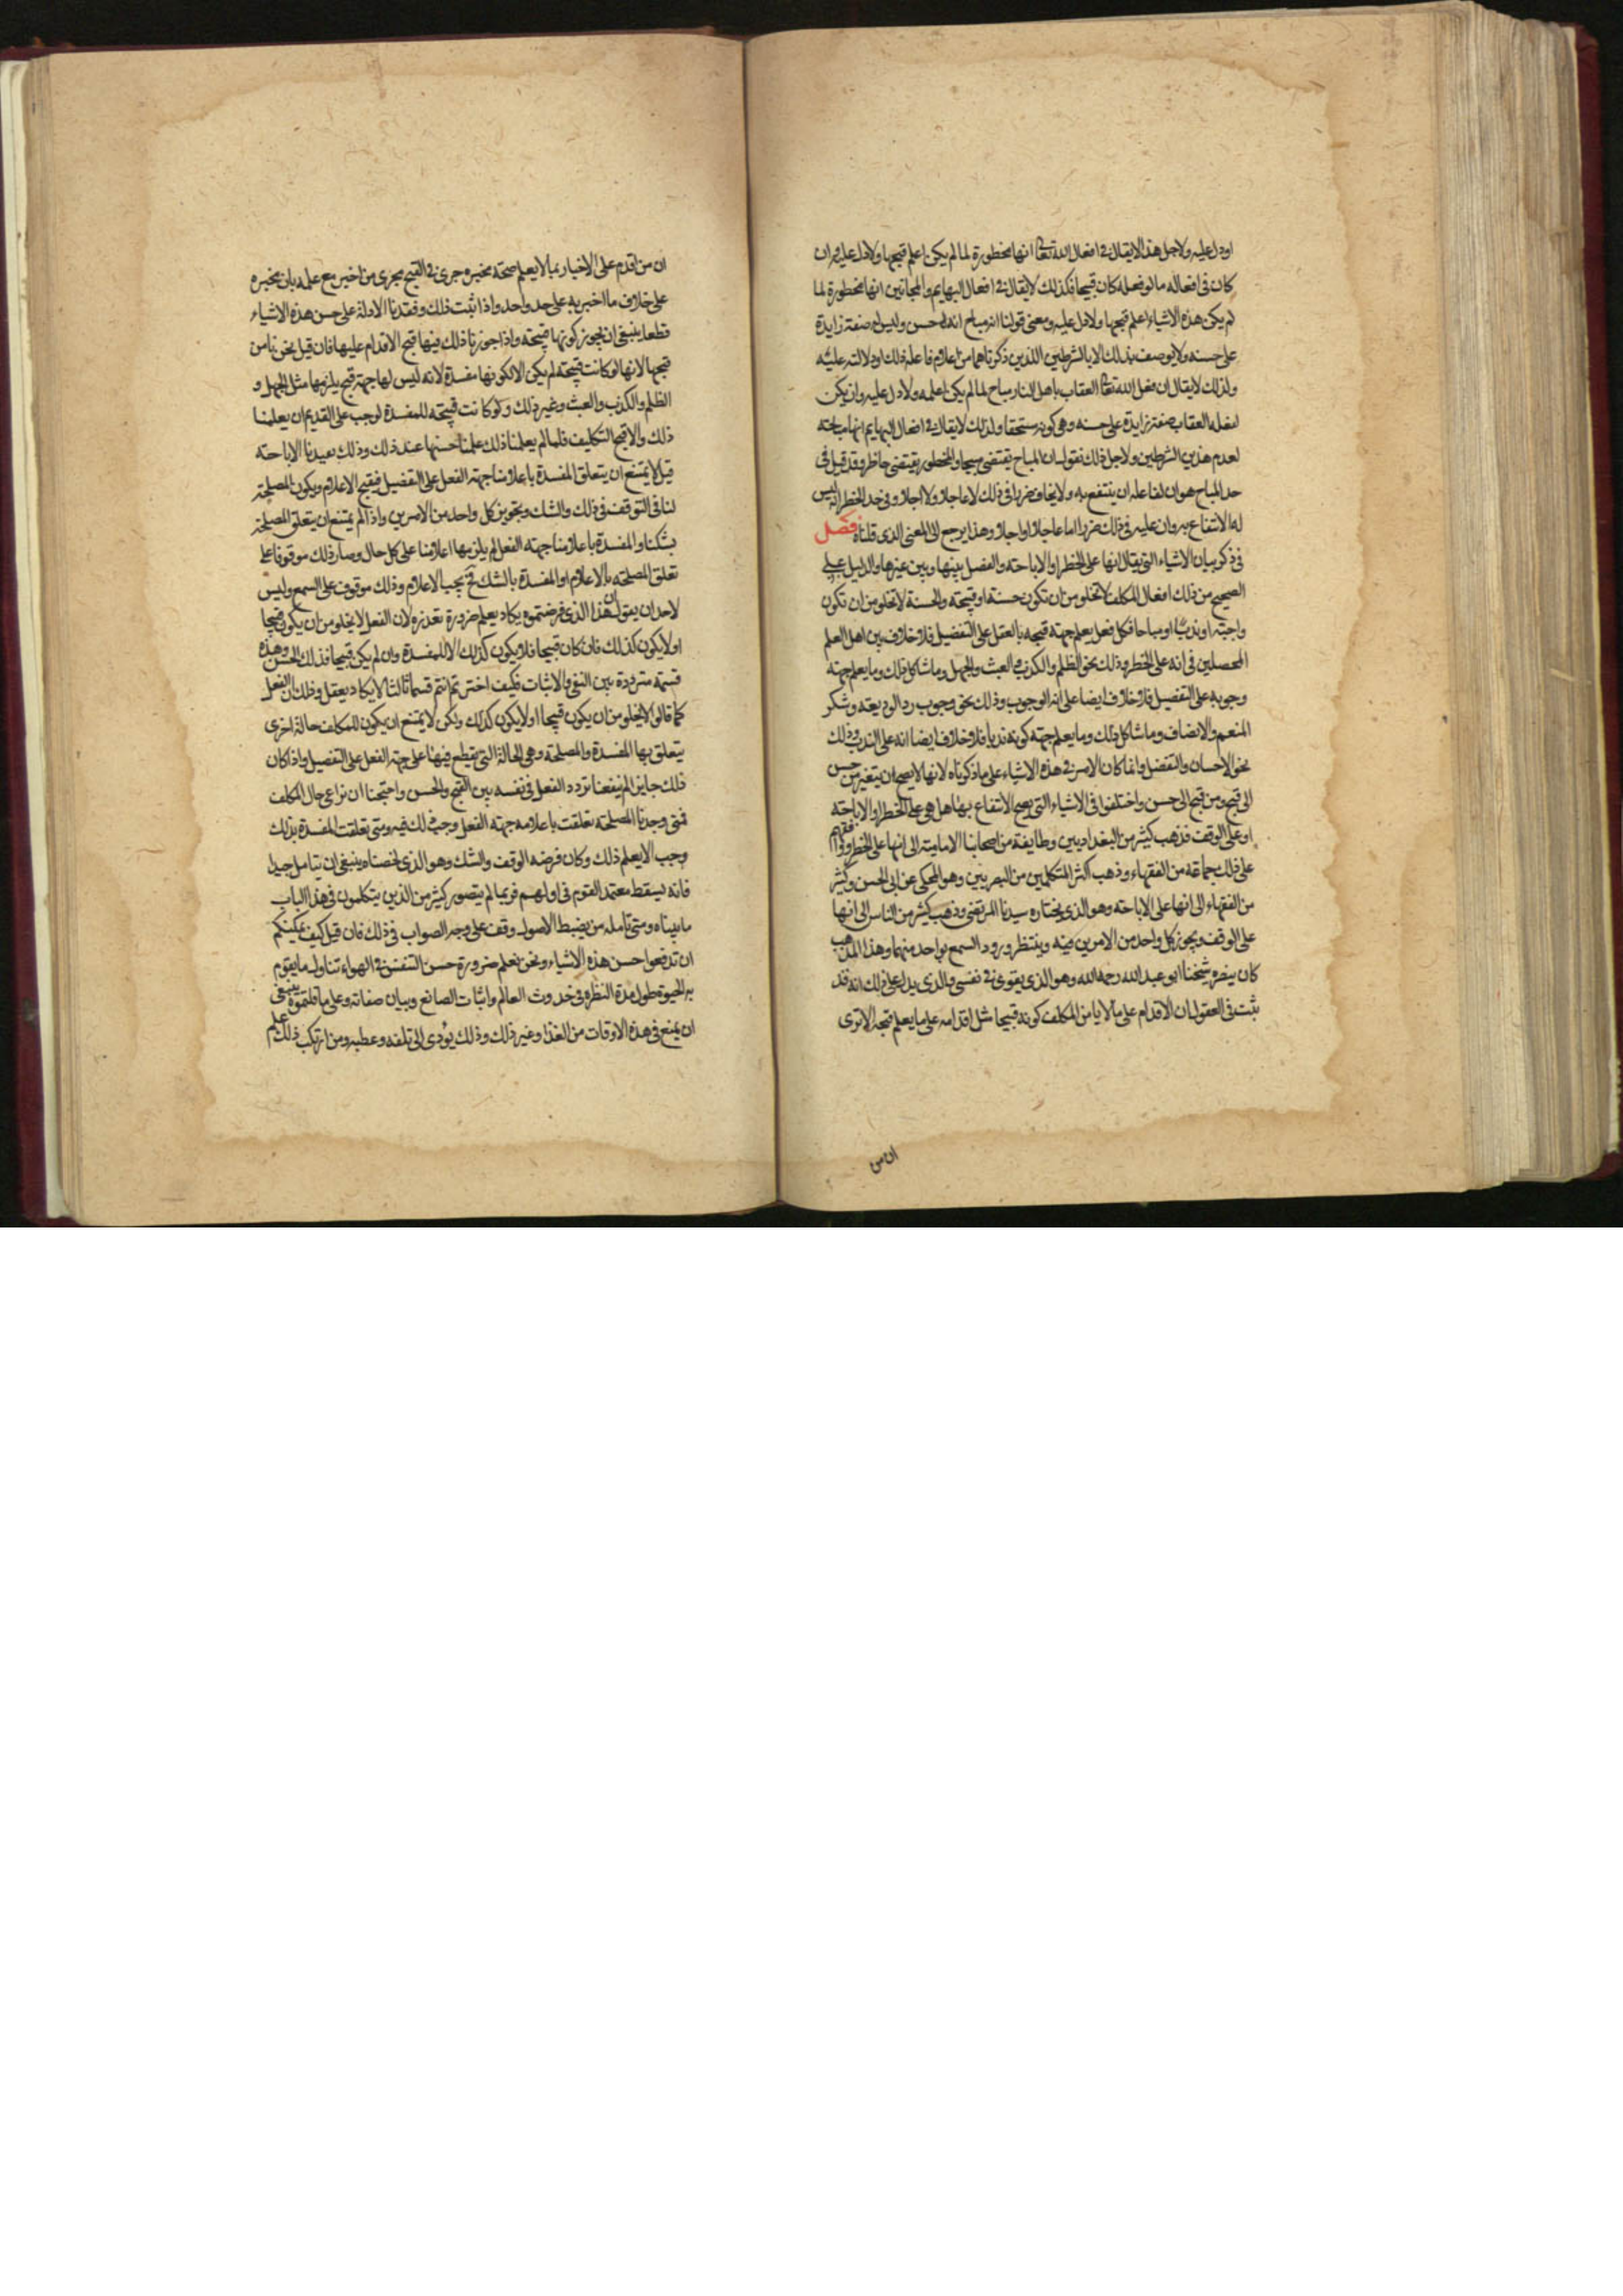 او دل عليه ولاجل هذا لايقال في افعال الله تعا انها محظورة لما لم يكن اعلم قبحها ولادل عليه وان
كان في افعاله ما لو فعله كان قبيحا وكذلك لايقال في افعال البهايم والمجانين انها محظورة لما
لم يكن هذه الاشياء اعلم قبحها ولادل عليه ومعنى قولنا انه مباح انه له حسن وليس له صفة زايدة
على حسنه ولايوصف بذلك الا بالشرطين اللذين ذكرناهما من اعلام فاعله ذلك او دلالته عليه
ولذلك لايقال ان فعل الله تعا العقاب باهل النار مباح لما لم يكن اعلمه ولادل عليه وان يكن
لفعله العقاب صفة زايدة على حسنه وهي كونه مستحقا ولذلك لايقال في افعال البهايم انها مباحته
لعدم هذين الشرطين ولاجل ذلك نقول ان المباح يقتضي مبيحا والمحظور يقتضي حاظرا وقد قيل في
حد المباح هو ان لفاعله ان ينتفع به ولايخاف ضررا في ذلك لا عاجلا ولا اجلا وفي حد الحظر انه ليس
له الانتفاع به وان عليه في ذلك ضررا اما عاجلا او اجلا وهذا يرجع الى المعنى الذي قلناه فصل
في ذكر بيان الاشياء التي يقال انها على الحظر او الاباحته والفصل بينها وبين غيرها والدليل على
الصحيح من ذلك افعال المكلف لاتخلو من ان تكون حسنة او قبيحته والحسنة لاتخلو من ان تكون
واجبته او ندبا او مباحا فكل فعل يعلم جهته قبحه بالعقل على التفصيل فلا خلاف بين اهل العلم
المحصلين في انه على الحظر وذلك نحو الظلم والكذب والعبث والجهل وما شاكل ذلك وما يعلم جهته
وجوبه على التفصيل فلا خلاف ايضا على انه الوجوب وذلك نحو وجوب رد الوديعته وشكر
المنعم والانصاف وما شاكل ذلك وما يعلم جهته كونه ندبا فلا خلاف ايضا انه على الندب وذلك
نحو الاحسان والتفضل وانما كان الامر في هذه الاشياء على ما ذكرناه لانها لايصح ان يتغير من حسن
الى قبح ومن قبح الى حسن واختلفوا في الاشياء التي يصح الانتفاع بها هل هي على الحظر او الاباحته
او على الوقف فذهب كثير من البغداديين وطايفة من اصحابنا الاماميته الى انها على الحظر ووافقهم
على ذلك جماعته من الفقهاء وذهب اكثر المتكلمين من البصريين وهو المحكي عن ابي الحسن وكثير
من الفقهاء الى انها على الاباحته وهو الذي يختاره سيدنا المرتضى وذهب كثير من الناس الى انها
على الوقف ويجوز كل واحد من الامرين فيه وينتظر ورود السمع بواحد منهما وهذا المذهب
كان ينصره شيخنا ابو عبد الله رحمه الله وهو الذي يقوى في نفسي والذي يدل على ذلك انه قد
ثبت في العقول ان الاقدام على ما لا يامن المكلف كونه قبيحا مثل اقدامه على ما يعلم قبحه الا ترى
ان من
ان من اقدم على الاخبار بما لايعلم صحته مخبره جرى في القبح مجرى من اخبر مع علمه بان مخبره
على خلاف ما اخبر به على حد واحد واذا ثبت ذلك وفقدنا الادلة على حسن هذه الاشياء
قطعا ينبغي ان نجوز كونها قبيحته واذا جوزنا ذلك فيها قبح الاقدام عليها فان قيل نحن نامن
قبحها لانها لو كانت قبيحته لم يكن الا لكونها مفسدة لانه ليس لها جهة قبح يلزمها مثل الجهل و
الظلم والكذب والعبث وغير ذلك ولو كانت قبيحته للمفسدة لوجب على القديم ان يعلمنا
ذلك والا قبح التكليف فلما لم يعلمنا ذلك علمنا حسنها عند ذلك وذلك يفيدنا الاباحته
قيل لايمتنع ان يتعلق المفسدة باعلامنا جهته الفعل على التفصيل فيقبح الاعلام ويكون المصلحته
لنا في التوقف في ذلك والشك وتجويز كل واحد من الامرين واذا لم يمتنع ان يتعلق المصلحته
بشكنا والمفسدة باعلامنا جهته الفعل لم يلزمها اعلامنا على كل حال وصار ذلك موقوفا على
تعلق المصلحته بالاعلام او المفسدة بالشك فح يجب الاعلام وذلك موقوف على السمع وليس
لاحد ان يقول ان هذا الذي فرضتموه يكاد يعلم ضرورة تعذره لان الفعل لايخلو من ان يكون قبيحا
او لايكون كذلك فان كان قبيحا فلا يكون كذلك الا للمفسدة وان لم يكن قبيحا فذلك الحسن وهذه
قسمته مترددة بين النفي والاثبات فكيف اخترتم انتم قسما ثالثا لايكاد يعقل وذلك ان الفعل
كما قالوا لايخلو من ان يكون قبيحا او لايكون كذلك ولكن لايمتنع ان يكون للمكلف حالة اخرى
يتعلق بها المفسدة والمصلحته وهي الحالة التي يقطع فيها على جهته الفعل على التفصيل واذا كان
ذلك جايزا لم ينفعنا تردد الفعل في نفسه بين القبح والحسن واحتجنا ان نراعي حال المكلف
فمتى وجدنا المصلحته تعلقت باعلامه جهته الفعل وجب ذلك فيه ومتى تعلقت المفسدة بذلك
وجب الا يعلم ذلك وكان فرضه الوقف والشك وهو الذي لخصناه ينبغي ان يتامل جيدا
فانه يسقط معتمد القوم في ادلتهم فربما لم يتصور كثير من الذين يتكلمون في هذا الباب
ما بيناه ومتى تامله من يضبط الاصول وقف على وجه الصواب في ذلك فان قيل كيف يمكنكم
ان تدفعوا حسن هذه الاشياء ونحن نعلم ضرورة حسن التنفس في الهواء وتناول ما يقوم
به الحيوة طول مدة النظر في حدوث العالم واثبات الصانع وبيان صفاته وعلى ما قلتموه ينبغي
ان يمنع في هذه الاوقات من الغذا وغير ذلك وذلك يؤدى الى تلفه وعطبه ومن ارتكب ذلك علم